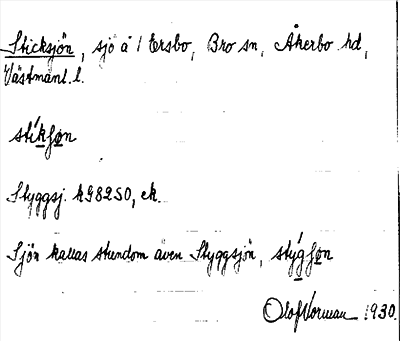 Sticksjön, sjö å 1 Ersbo, Bro sn, Åkerbo hd,
Västmanl. l.
stíkʃøn
Styggsj. k G82SO, ek.
Sjön kallas stundom även Styggsjön, stýgʃøn
Olof Vorman 1930.